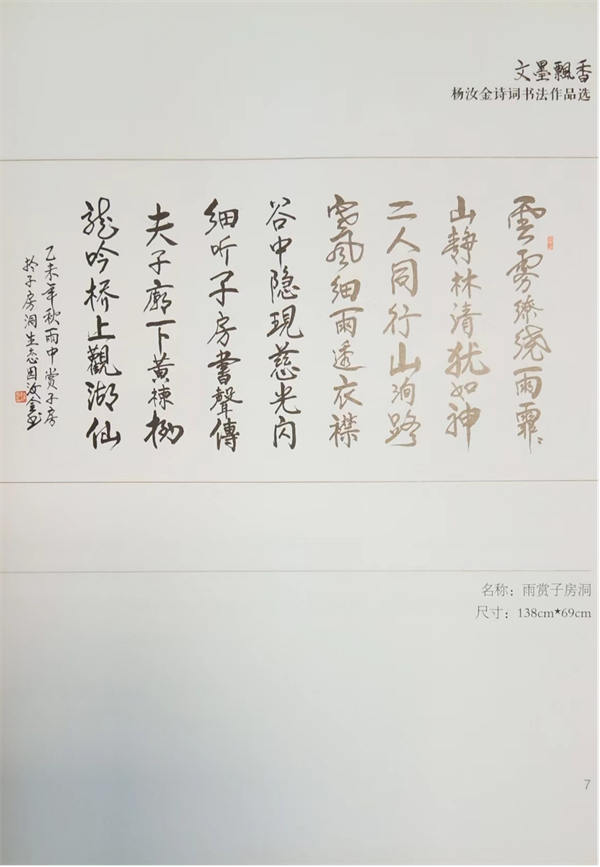 文墨飄香
杨汝金诗词书法作品选
雲雰繞雨霏〻
山靜林清犹如神
二人同行山洞路
风細雨透衣襟
谷中隐現慈光闪
细听子房書聲傳
夫子廊下黄棟柳
龍吟桥上觀湖仙
乙未年秋雨中赏子房
於子房洞生态园汝金
名称：雨赏子房洞
尺寸：138cm*69cm
7